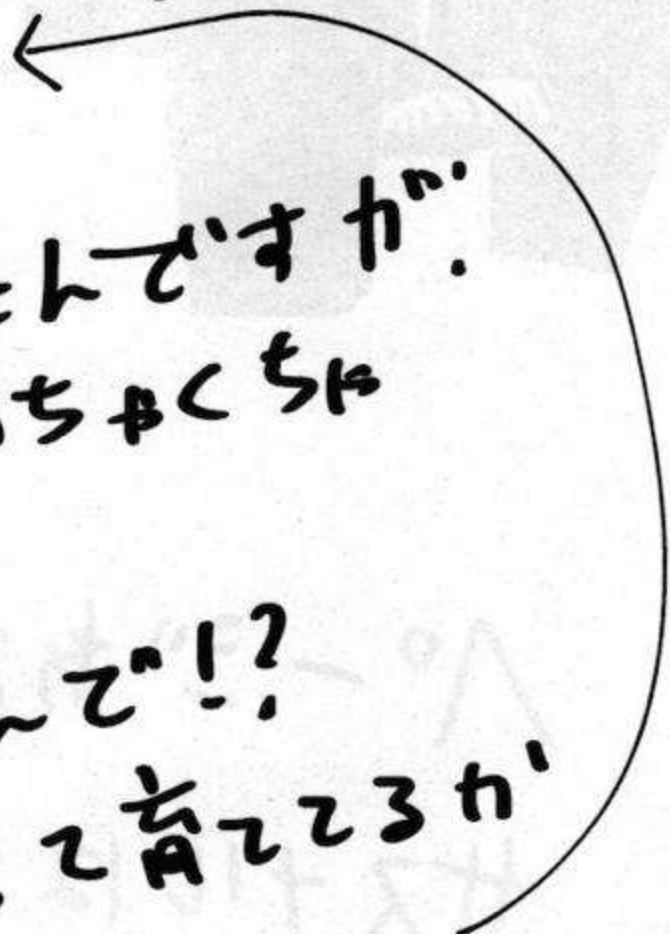 んですが.
ちゃくちゃ
で!?
て育ててるか